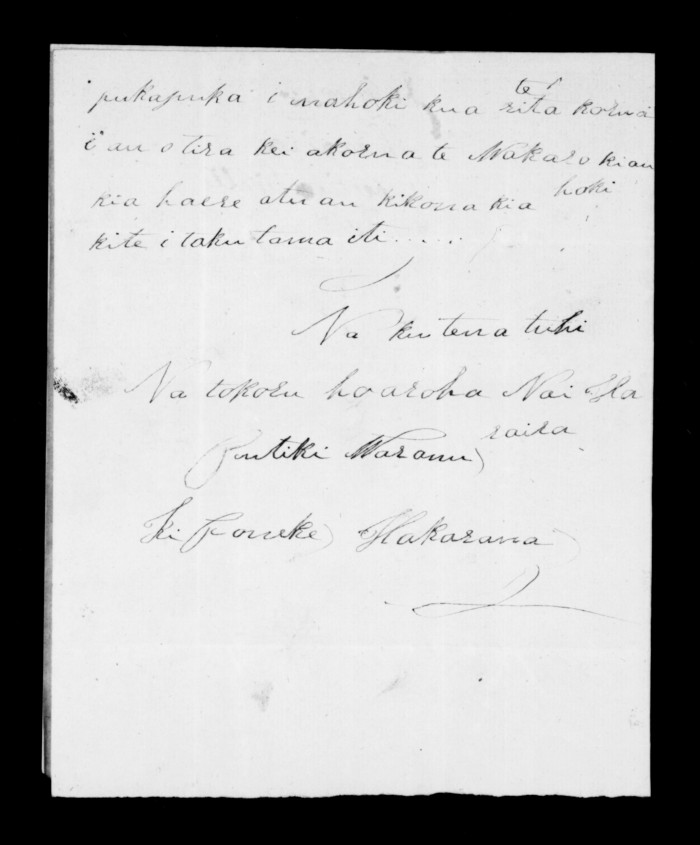 pukapuka i nahoki kua te rita korua
i au otira kei akorua te Wakaro kiau
kia haere atu au kikona kia hoki
kite i taku tama iti.....
Na kutena tuhi
Na tokoru hoaroha Nai Ha
raira
Putiki Waranui
Ki Poneke Hakarana